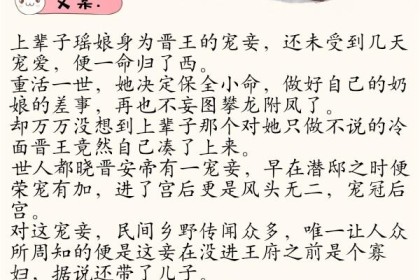 文案:
上辈子瑶娘身为晋王的宠妾，还未受到几天
宠爱，便一命归了西。
重活一世，她决定保全小命，做好自己的奶
娘的差事，再也不妄图攀龙附凤了。
却万万没想到上辈子那个对她只做不说的冷
面晋王竟然自己凑了上来。
世人都晓晋安帝有一宠妾，早在潜邸之时便
荣宠有加，进了宫后更是风头无二，宠冠后
宫。
对这宠妾，民间乡野传闻众多，唯一让人众
所周知的便是这妾在没进王府之前是个寡
妇，据说还带了儿子。